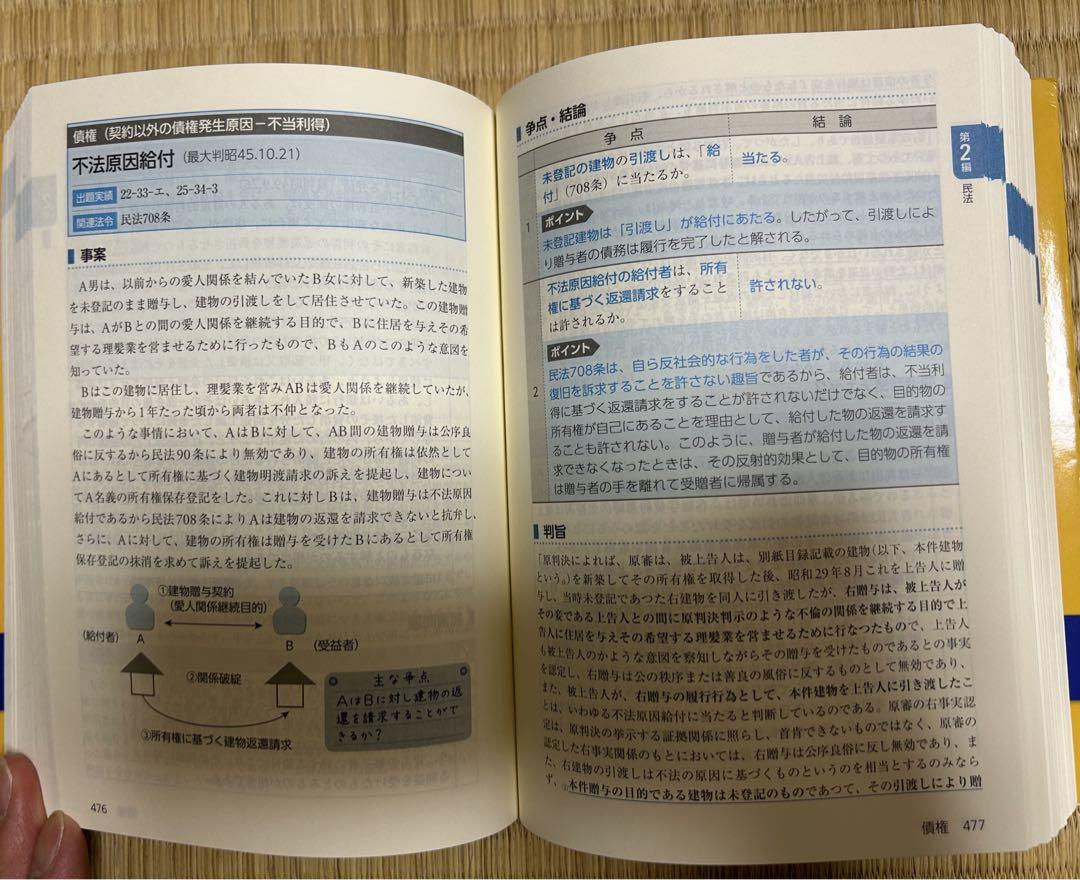 債権（契約以外の債権発生原因－不当利得）
不法原因給付（最大判昭45.10.21）
出題実績 22-33-エ、25-34-3
関連法令 民法708条
事案
A男は、以前からの愛人関係を結んでいたB女に対して、新築した建物
を未登記のまま贈与し、建物の引渡しをして居住させていた。この建物贈
与は、AがBとの間の愛人関係を継続する目的で、Bに住居を与えその希
望する理髪業を営ませるために行ったもので、BもAのこのような意図を
知っていた。
Bはこの建物に居住し、理髪業を営みABは愛人関係を継続していたが、
建物贈与から1年たった頃から両者は不仲となった。
このような事情において、AはBに対して、AB間の建物贈与は公序良
俗に反するから民法90条により無効であり、建物の所有権は依然として
Aにあるとして所有権に基づく建物明渡請求の訴えを提起し、建物につい
てA名義の所有権保存登記をした。これに対しBは、建物贈与は不法原因
給付であるから民法708条によりAは建物の返還を請求できないと抗弁し、
さらに、Aに対して、建物の所有権は贈与を受けたBにあるとして所有権
保存登記の抹消を求めて訴えを提起した。
①建物贈与契約
（愛人関係継続目的）
（給付者） A
B （受益者）
②関係破綻
③所有権に基づく建物返還請求
主な争点
AはBに対し建物の返
還を請求することがで
きるか？
476
争点・結論
争点 結論
1
未登記の建物の引渡しは、「給
付」（708条）に当たるか。
当たる。
ポイント
未登記建物は「引渡し」が給付にあたる。したがって、引渡しによ
り贈与者の債務は履行を完了したと解される。
2
不法原因給付の給付者は、所有
権に基づく返還請求をすること
は許されるか。
許されない。
ポイント
民法708条は、自ら反社会的な行為をした者が、その行為の結果の
復旧を訴求することを許さない趣旨であるから、給付者は、不当利
得に基づく返還請求をすることが許されないだけでなく、目的物の
所有権が自己にあることを理由として、給付した物の返還を請求す
ることも許されない。このように、贈与者が給付した物の返還を請
求できなくなったときは、その反射的効果として、目的物の所有権
は贈与者の手を離れて受贈者に帰属する。
判旨
「原判決によれば、原審は、被上告人は、別紙目録記載の建物（以下、本件建物
という。）を新築してその所有権を取得した後、昭和29年8月これを上告人に贈
与し、当時未登記であつた右建物を同人に引き渡したが、右贈与は、被上告人が
その妾である上告人との間に原判決判示のような不倫の関係を継続する目的で上
告人に住居を与えその希望する理髪業を営ませるために行なつたもので、上告人
も被上告人のかような意図を察知しながらその贈与を受けたものであるとの事実
を認定し、右贈与は公の秩序または善良の風俗に反するものとして無効であり、
また、被上告人が、右贈与の履行行為として、本件建物を上告人に引き渡したこ
とは、いわゆる不法原因給付に当たると判断しているのである。原審の右事実認
定は、原判決の挙示する証拠関係に照らし、首肯できないものではなく、原審の
認定した右事実関係のもとにおいては、右贈与は公序良俗に反し無効であり、ま
た、右建物の引渡しは不法の原因に基づくものというのを相当とするのみなら
ず、①本件贈与の目的である建物は未登記のものであつて、その引渡しにより贈
第2編
民法
債権 477